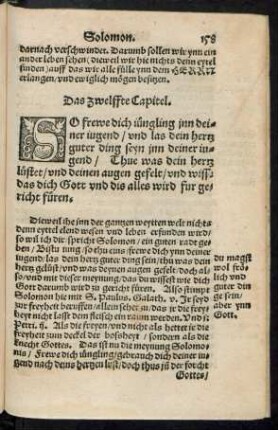 Solomon. 158
darnach verschwindet. Darumb sollen wir ynn ein
ander leben sehen / dieweil wir hie nichts denn eytel
finden / auff das wir alle fülle ynn dem HERRN
erlangen / vnd ewiglich mögen besitzen.
Das zwelffte Capitel.
SO frewe dich iüngling jnn dei-
ner iugend / vnd las dein hertz
guter ding seyn jnn deiner iu-
gend / Thue was dein hertz
lüstet / vnd deinen augen gefelt / vnd wiss /
das dich Gott vnd dis alles wird fur ge-
richt füren.
Dieweil ihe jnn der gantzen weyten welt nichts
denn eytel elend wesen vnd leben erfunden wird /
so wil ich dir spricht Solomon / ein guten radt ge-
ben / Bistu iung / so thu eins frewe dich ynn deiner
iugend / las dein hertz guter ding sein / thu was dein
hertz gelüst / vnd was deynen augen gefelt / doch al-
so / vnd inn dieser meynung / das du wissest wie dich
Gott darumb wird zu gericht füren. Also stimpt
Solomon hie mit S. Paulus. Galath. v. Jr seyd
zur freyheit beruffen / allein sehet zu / das jr die frey-
heyt nicht lasst dem fleisch ein raum werden. Vnd i.
Petri. ij. Als die freyen / vnd nicht als hettet ir die
freyheit zum deckel der bosheyt / sondern als die
knecht Gottes. Das ist nu die meynung Solomo-
nis / Frewe dich iüngling / gebrauch dich deiner iu-
gend nach deins hertzen lust / doch thus jn der forcht
Gottes /
du magst
wol frö-
lich vnd
guter din
ge sein /
aber ynn
Gott.